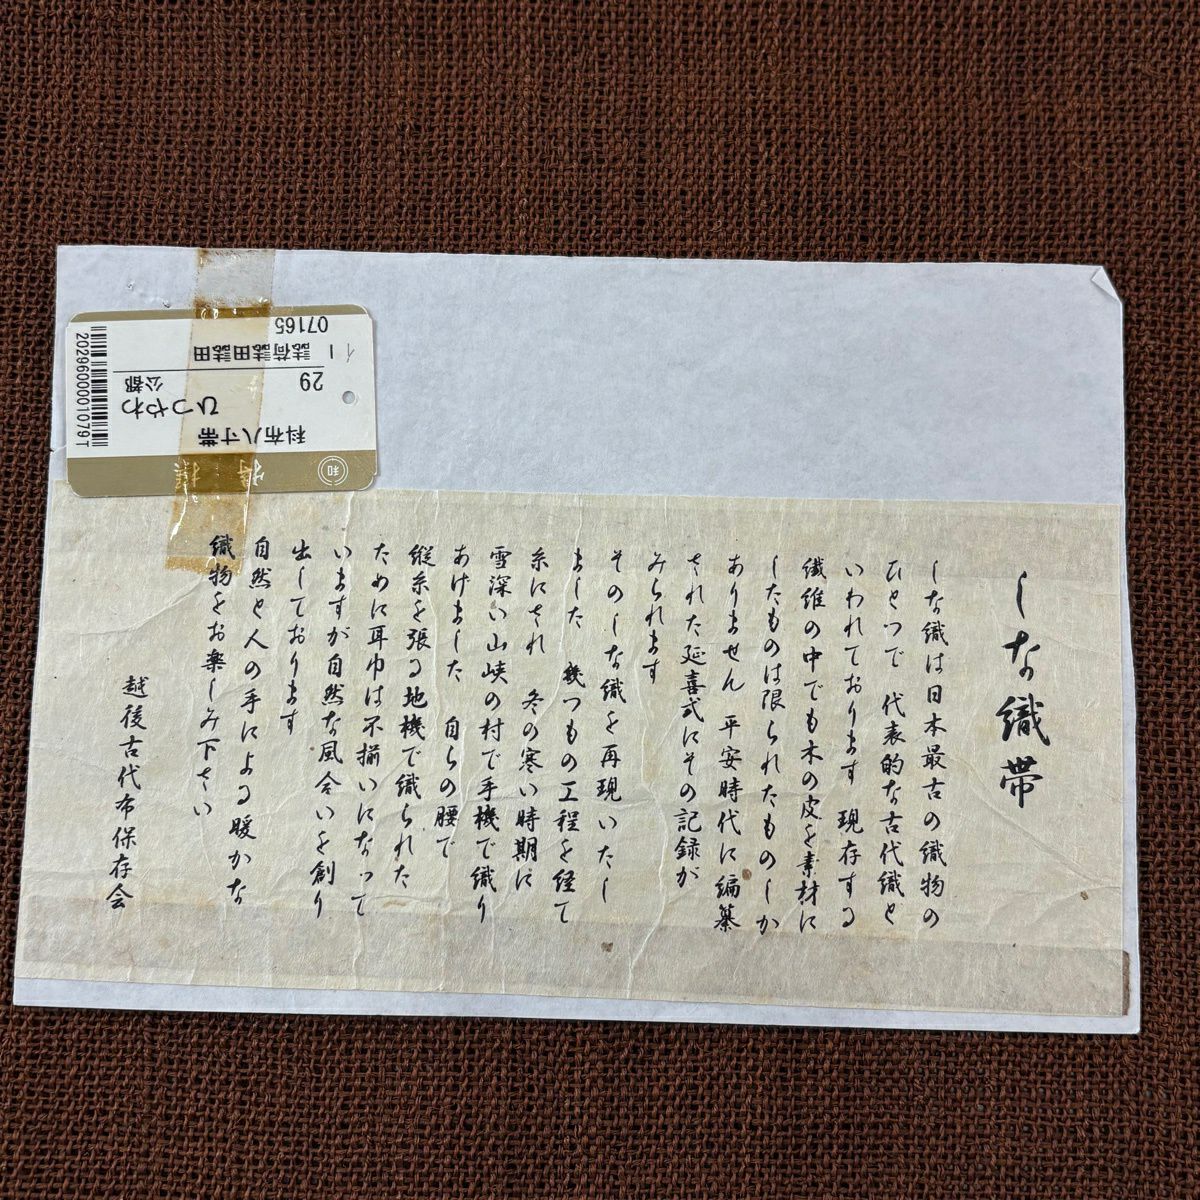 しな織帯
しな織は日本最古の織物の
ひとつで 代表的な古代織と
いわれております 現存する
繊維の中でも木の皮を素材に
したものは限られたものしか
ありません 平安時代に編纂
された延喜式にその記録が
みられます
そのしな織を再現いたし
ました 幾つもの工程を経て
糸にされ 冬の寒い時期に
雪深い山峡の村で手機で織り
あげました 自らの腰で
縦糸を張る地機で織られた
ために耳巾は不揃いになって
いますが自然な風合いを創り
出しております
自然と人の手による暖かな
織物をお楽しみ下さい
越後古代布保存会
和
科布八寸帯
ひつやわ
公都
29
1 誌荷誌田誌田
07165
2029600001079T